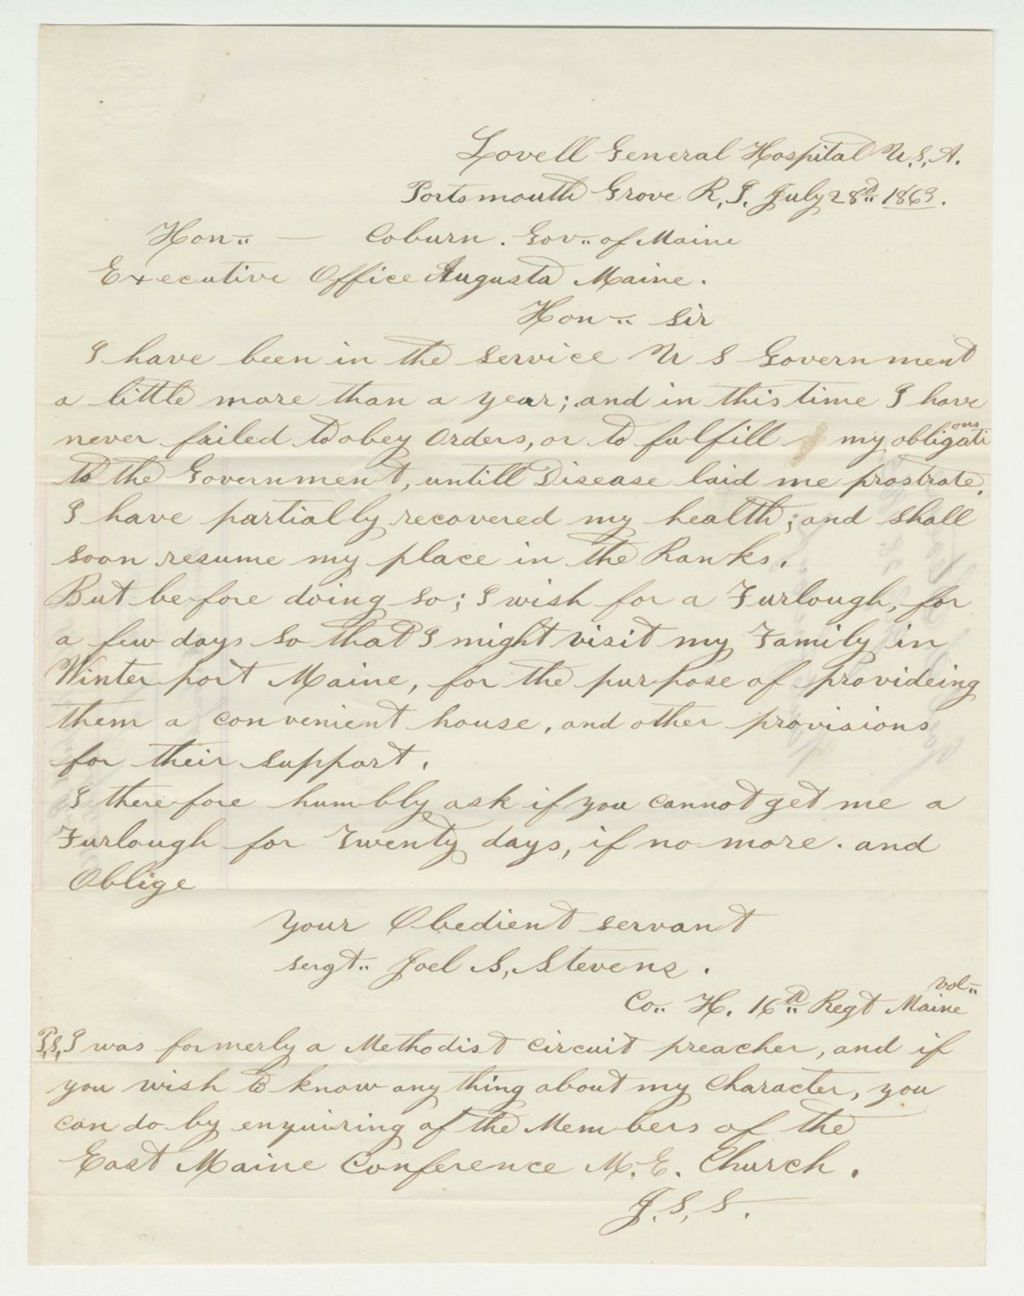 Lovell General Hospital U.S.A.
Portsmouth Grove R.I. July 28th 1863.
Hon.. — Coburn. Gov.. of Maine
Executive Office Augusta Maine.
Hon.. Sir
I have been in the service U S Government
a little more than a year; and in this time I have
never failed to obey Orders, or to fulfill my obligations
to the Government, untill Disease laid me prostrate.
I have partially recovered my health; and shall
soon resume my place in the Ranks.
But before doing so; I wish for a Furlough, for
a few days so that I might visit my Family in
Winterport Maine, for the purpose of provideing
them a convenient house, and other provisions
for their support.
I therefore humbly ask if you cannot get me a
Furlough for Twenty days, if no more. and
Oblige
Your Obedient servant
sergt.. Joel S. Stevens.
Co.. H. 16th Regt Maine vol..
P.S. I was formerly a Methodist circuit preacher, and if
you wish to know any thing about my Character, you
can do by enquiring of the Members of the
East Maine Conference M.E. Church.
J.S.S.